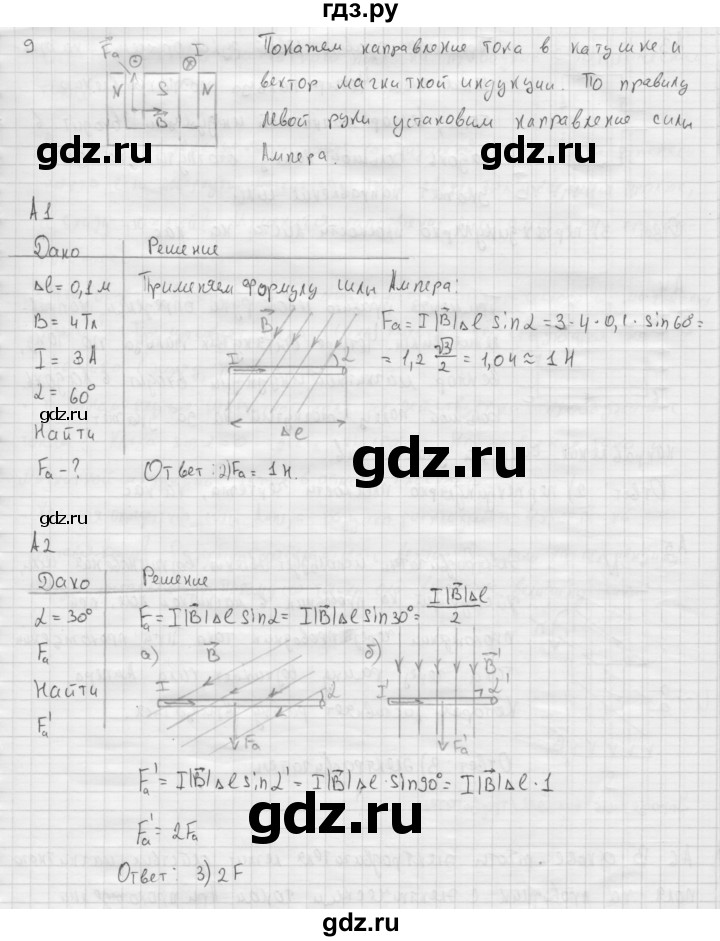 гдз.ру
9
F⃗a I
Покажем направление тока в катушке и
N S N
вектор магнитной индукции. По правилу
B⃗
левой руки установим направление силы
Ампера.
gdz.ru gdz.ru
А1
gdz.ru
Дако Решение
Δl = 0,1 м Применяем формулу силы Ампера:
B = 4Тл B⃗ Fа = I |B⃗| Δl sin α = 3 · 4 · 0,1 · sin 60° =
I = 3 А I α = 1,2 √3/2 = 1,04 ≈ 1 Н
α = 60°
gdz.ru
Найти Δl
Fа - ? Ответ: 2) Fа = 1 Н.
gdz.ru gdz.ru
gdz.ru
А2
Дако Решение
α = 30° Fа = I |B⃗| Δl sin α = I |B⃗| Δl sin 30° = I |B⃗| Δl / 2
Fа а) B⃗ б) B⃗'
gdz.ru
Найти I α I' α'
Fа' Fа Fа'
gdz.ru
Fа' = I |B⃗| Δl sin α' = I |B⃗| Δl · sin 90° = I |B⃗| Δl · 1
gdz.ru gdz.ru
Fа' = 2Fа
Ответ: 3) 2F
gdz.ru
gdz.ru